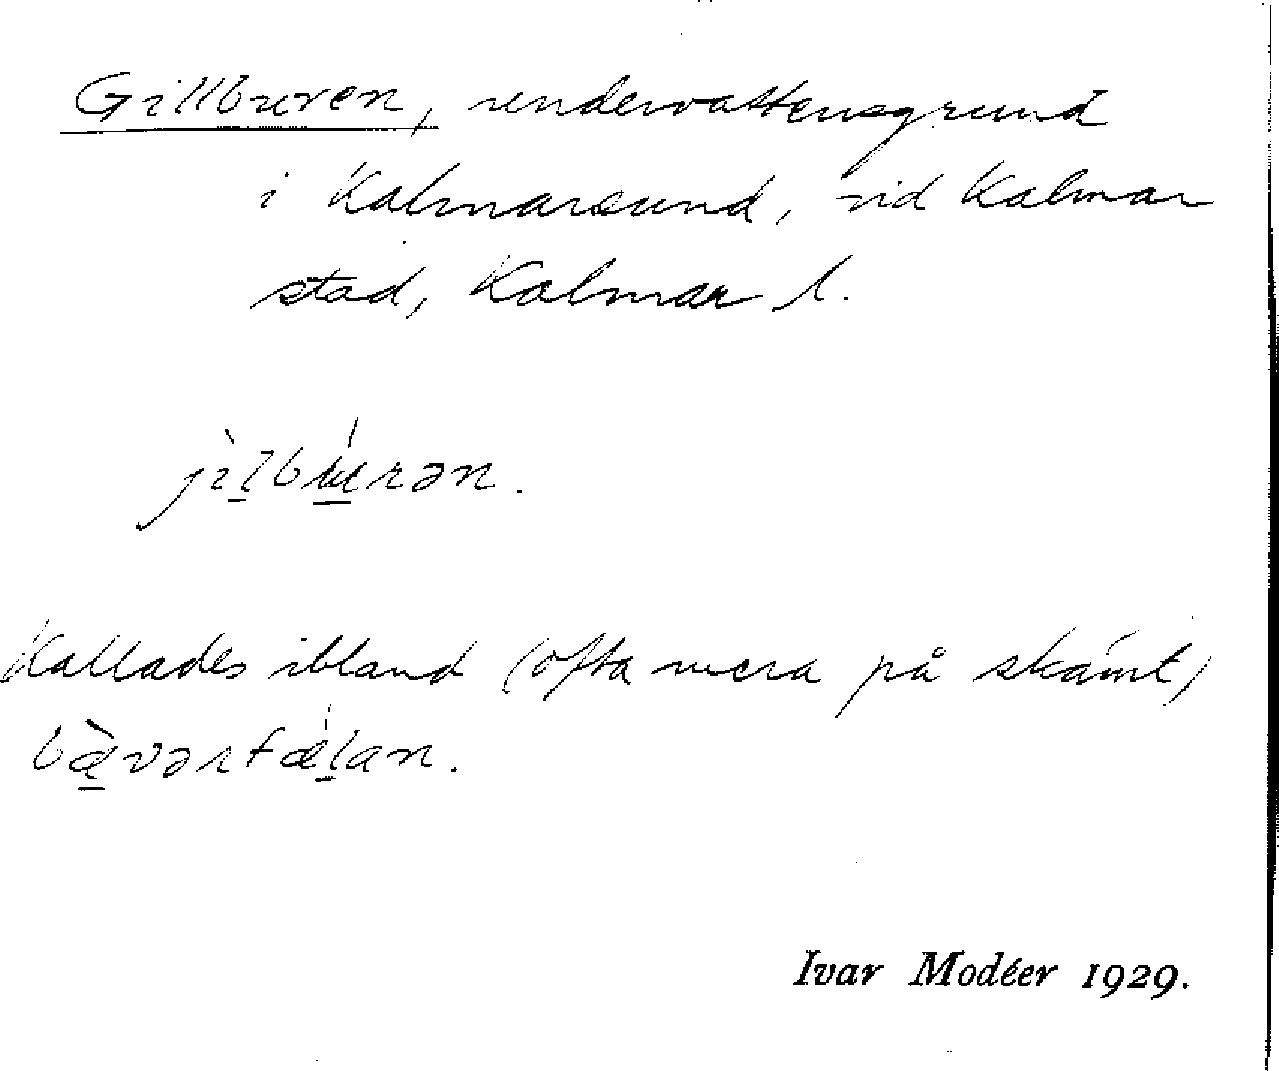 Gillburen, undervattensgrund
i Kalmarsund, vid Kalmar
stad, Kalmar l.
jìl̲bʉ̲́rən.
Kallades ibland (ofta mera på skämt)
bæ̲̀vərfǽl̲an.
Ivar Modéer 1929.